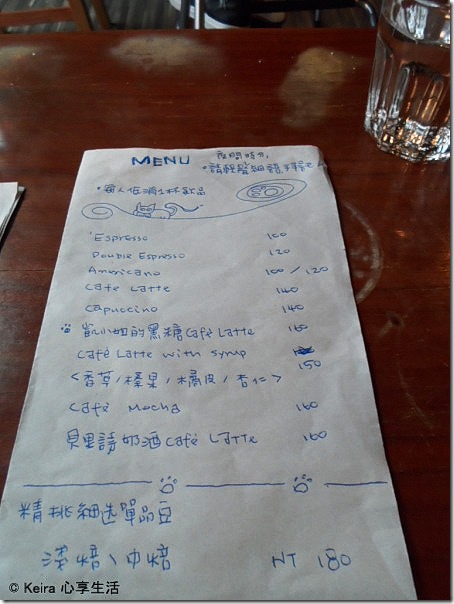 MENU
夜間時分,
·請輕聲細語,
·每人低消1杯飲品
Espresso 100
Double Espresso 120
Americano 100/120
Cafe Latte 140
Capuccino 140
凱小姐的黑糖Café Latte 160
Café Latte with syrup
150
<香草/榛果/橘皮/杏仁>
Café Mocha 160
貝里詩奶酒Café Latte 160
精挑細选單品豆
淺焙、中焙 NT 180
© Keira 心享生活